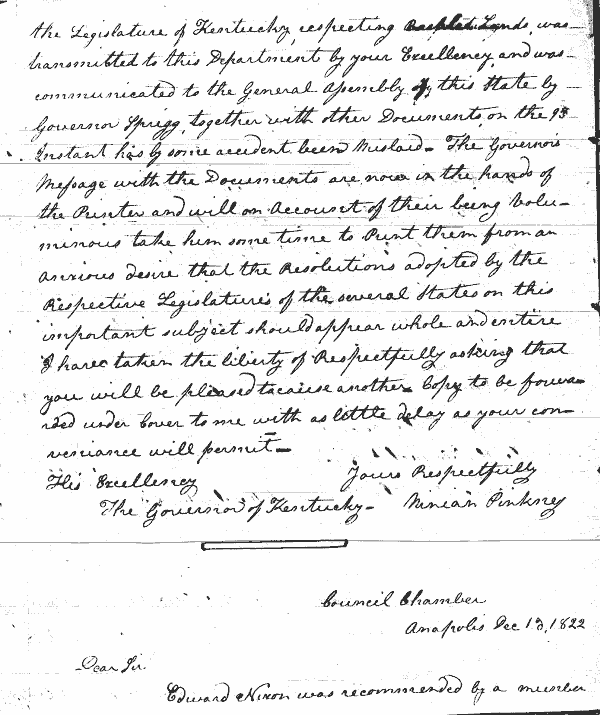 the Legislature of Kentucky, respecting Lands, was
transmitted to this Department by your Excellency, and was
communicated to the General Assembly of this State by
Governor Sprigg, together with other Documents, on the
Instant has by some accident been Mislaid - The Governors
Message with the Documents are now in the hands of
the Printer and will on Account of their being Volu-
minous take him some time to Print them from an
anxious desire that the Resolutions adopted by the
Respective Legislature's of the several States on this
important subject should appear whole and entire
I have taken the liberty of Respectfully asking that
you will be pleased to cause another Copy to be forwa-
rded under Cover to me with as little delay as your con-
veniance will permit -
His Excellency Yours Respectfully
The Governor of Kentucky - Ninian Pinkney
Council Chamber
Anapolis Dec 13, 1822
Dear Sir.
Edward Nixon was recommended by a member